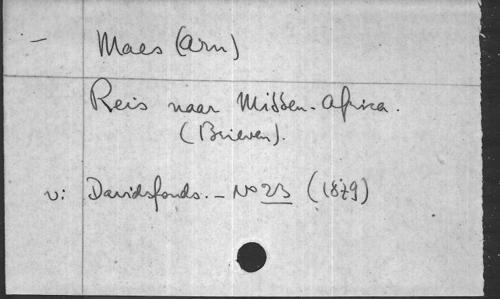 — Maes (Arn)
Reis naar Midden-Africa.
(Brieven).
v: Davidsfonds. – No 23 (1879)